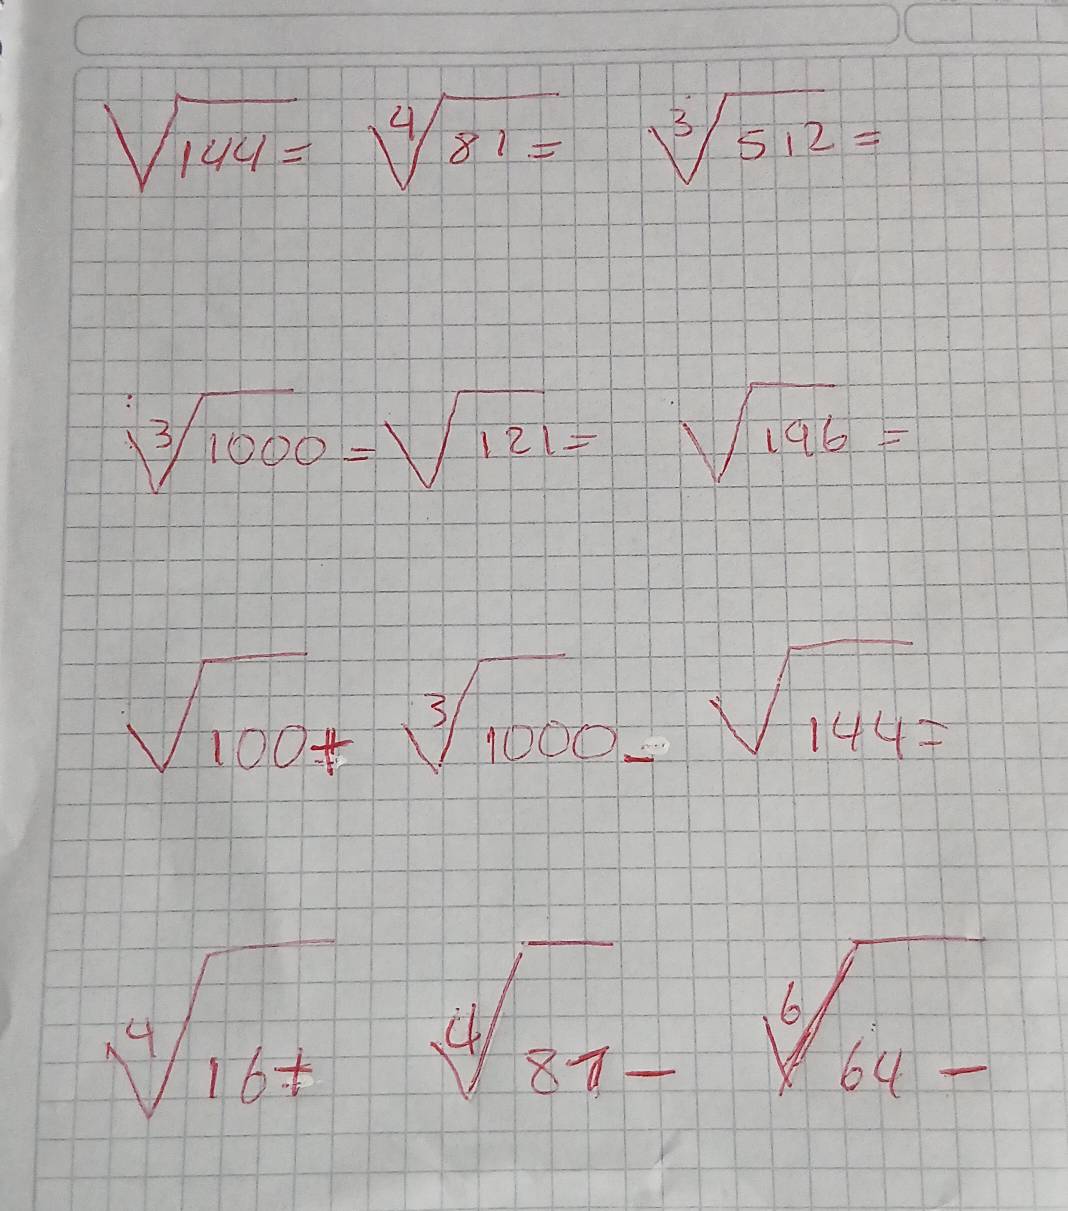 √144= ∜81= ∛512=
∛1000= √121= √196=
√100+ ∛1000- √144=
∜16+ ∜81- ⁶√64-